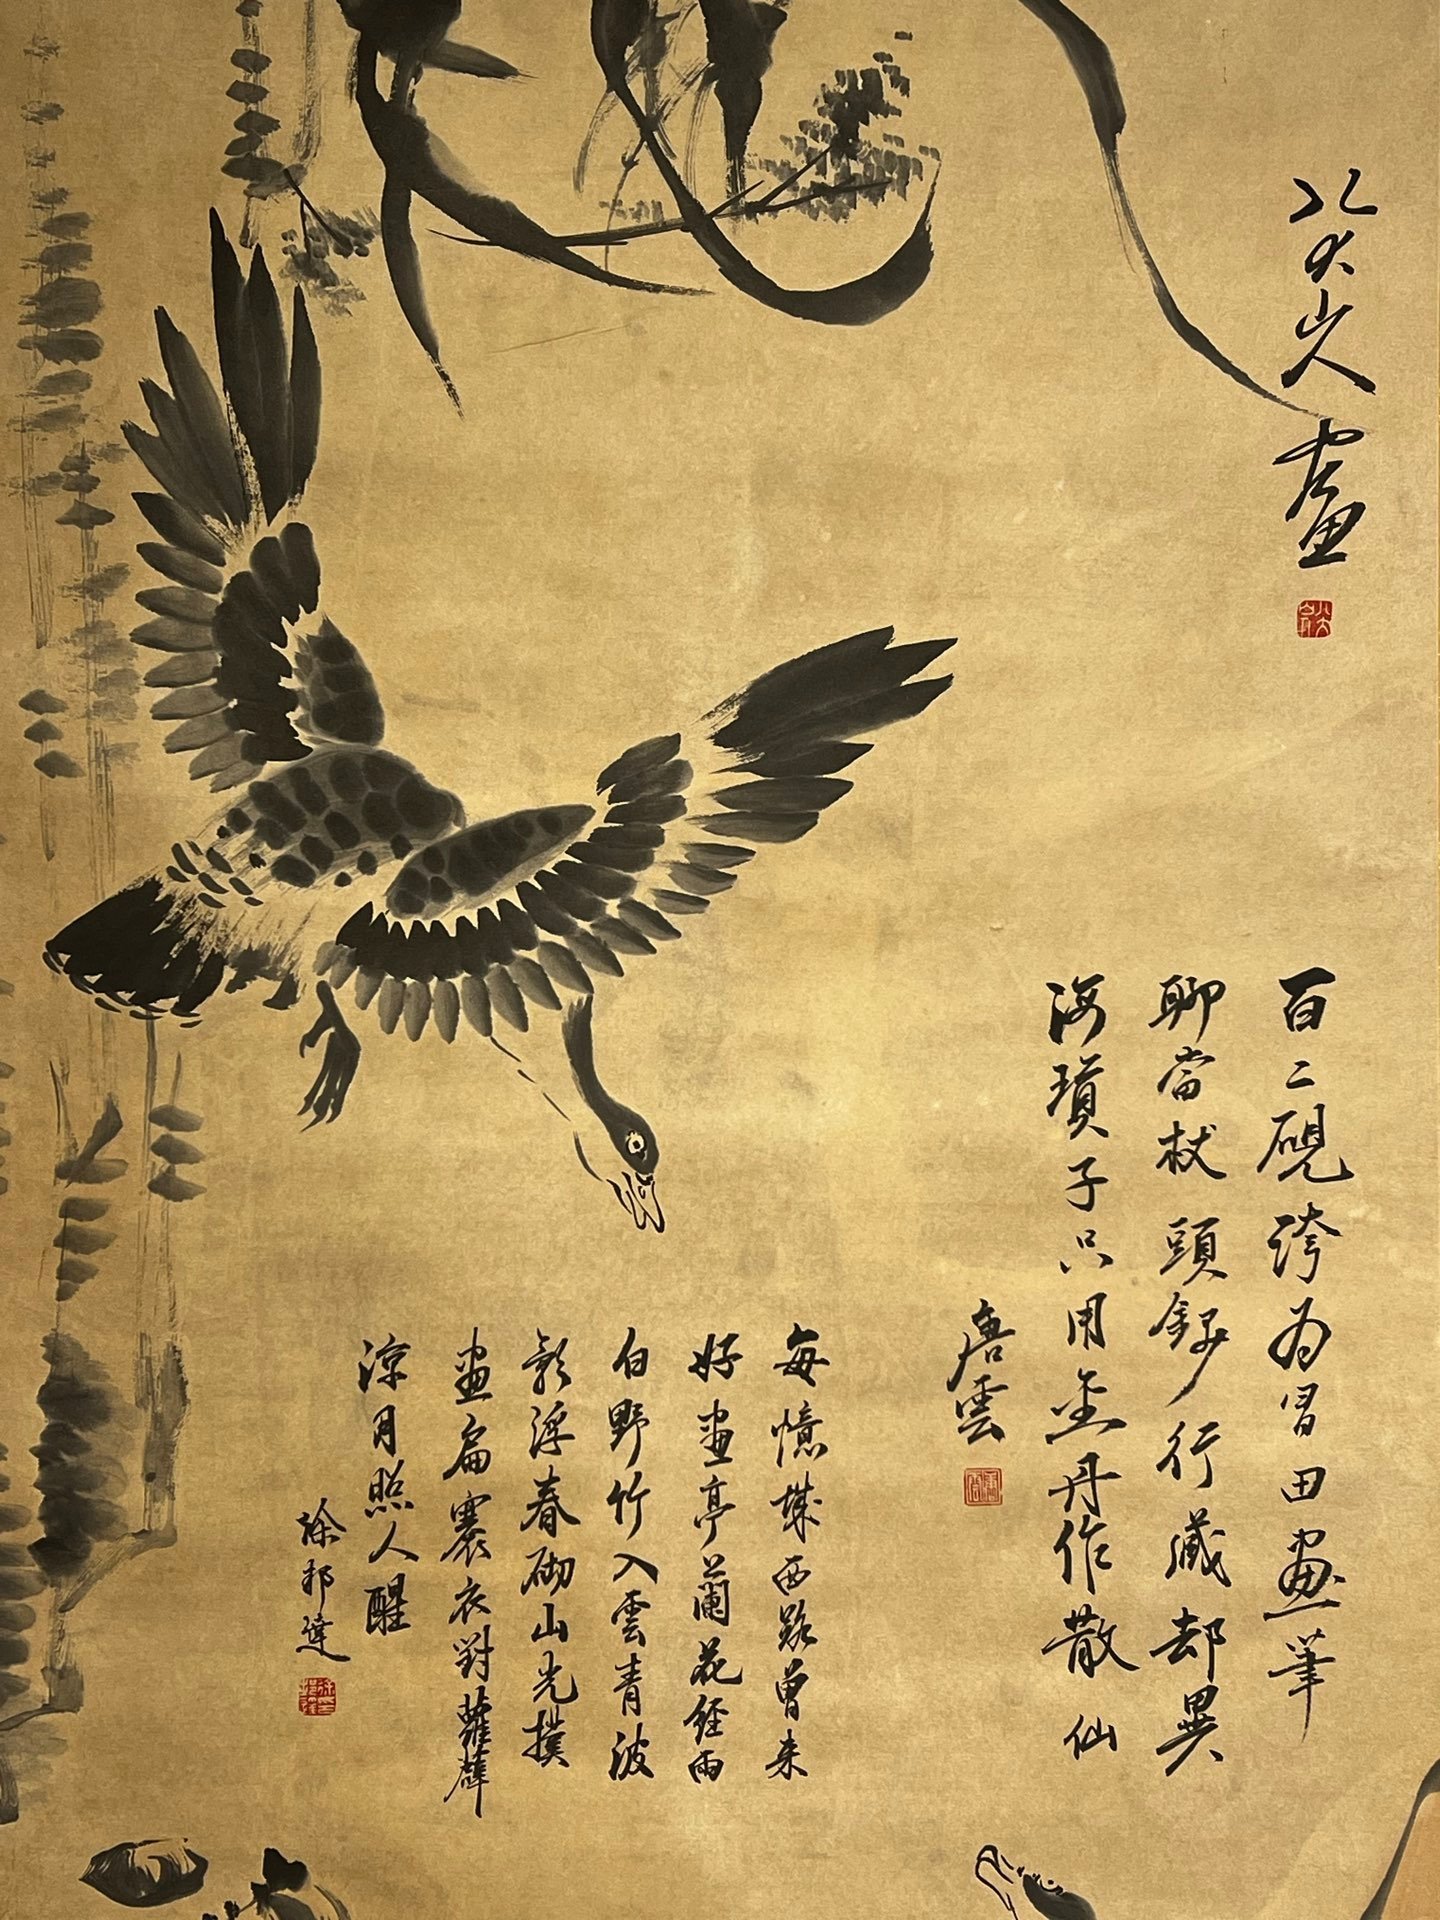 八大山人畫
百二硯誇為冒田畫筆
聊當杖頭錢行藏却異
海瓊子只用金丹作散仙
唐雲
每憶城西路曾来
好畫亭蘭花經雨
白野竹入雲青波
影浮春砌山光撲
畫扁褰衣對蘿薜
涼月照人醒
徐邦達